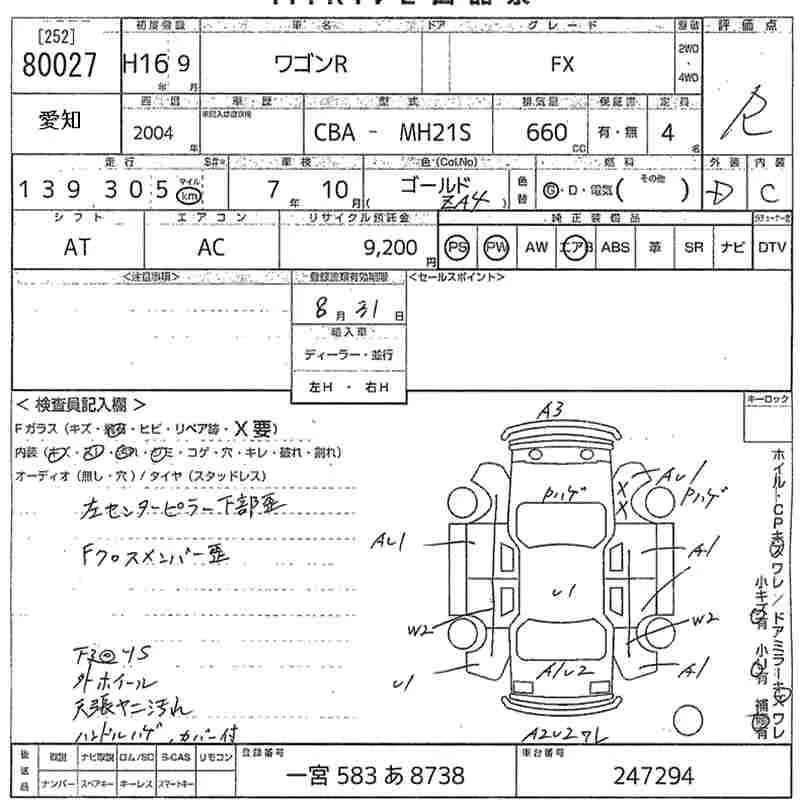 [252]
80027
初度登録
車名
ドア
グレード
駆動
評価点
H16 年 9 月
ワゴンR
FX
2WD
・
4WD
R
愛知
西暦
2004 年
車歴
型式
CBA - MH21S
排気量
660 CC
保証書
有・無
定員
4 名
走行
139305
マイル
km
S#*
車検
7 年 10 月
色(Col.No)
ゴールド
ZA4
色替
燃料
G・D・電気( その他 )
外装
D
内装
C
シフト
AT
エアコン
AC
リサイクル預託金
9,200 円
純正装備品
PS PW AW エアB ABS 革 SR ナビ DTV
<注意事項>
登録書類有効期限
8 月 31 日
<セールスポイント>
輸入車
ディーラー・並行
左H ・ 右H
< 検査員記入欄 >
キーロック
Fガラス (キズ・ ・ヒビ・リペア跡・X要)
内装 (キズ・ ・ ・ ・コゲ・穴・キレ・破れ・割れ)
オーディオ (無し・穴) / タイヤ (スタッドレス)
左センターピラー下部歪
Fクロスメンバー歪
外ホイール
天張ヤニ汚れ
ハンドルハゲ、カバー付
A3
Pハゲ
X
X
AU1
Pハゲ
AU1
A1
U1
W2
W2
U1
A1U2
A1
A2U2ワレ
ホイル・CPキズワレ/ドアミラーキズワレ
小キズ有 小U有 補修有
後送品
取説 ナビ取説 ロム/SD S-CAS リモコン
ナンバー スペアキー キーレス スマートキー
登録番号
一宮 583 あ 8738
車台番号
247294